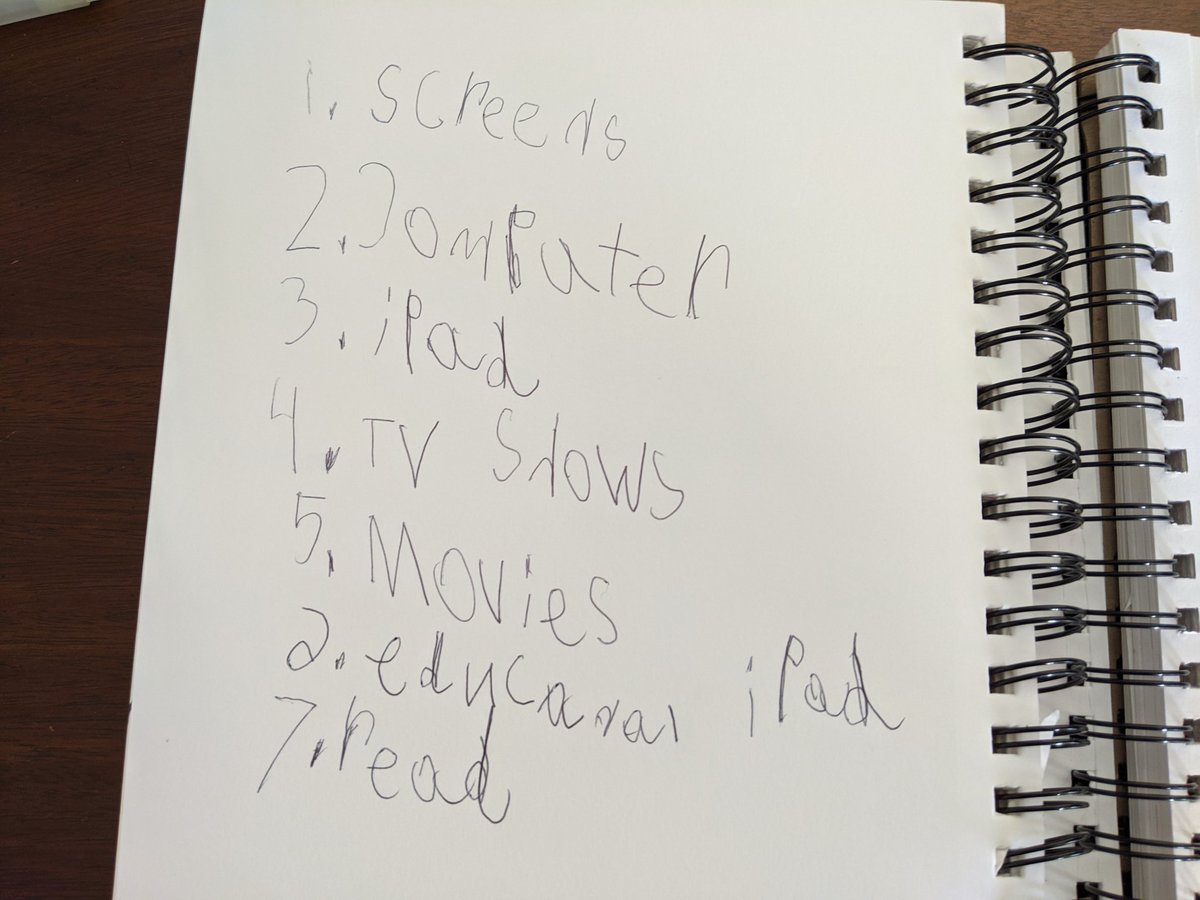 1. screens
2. Computer
3. iPad
4. TV Shows
5. Movies
6. iPad
7. read